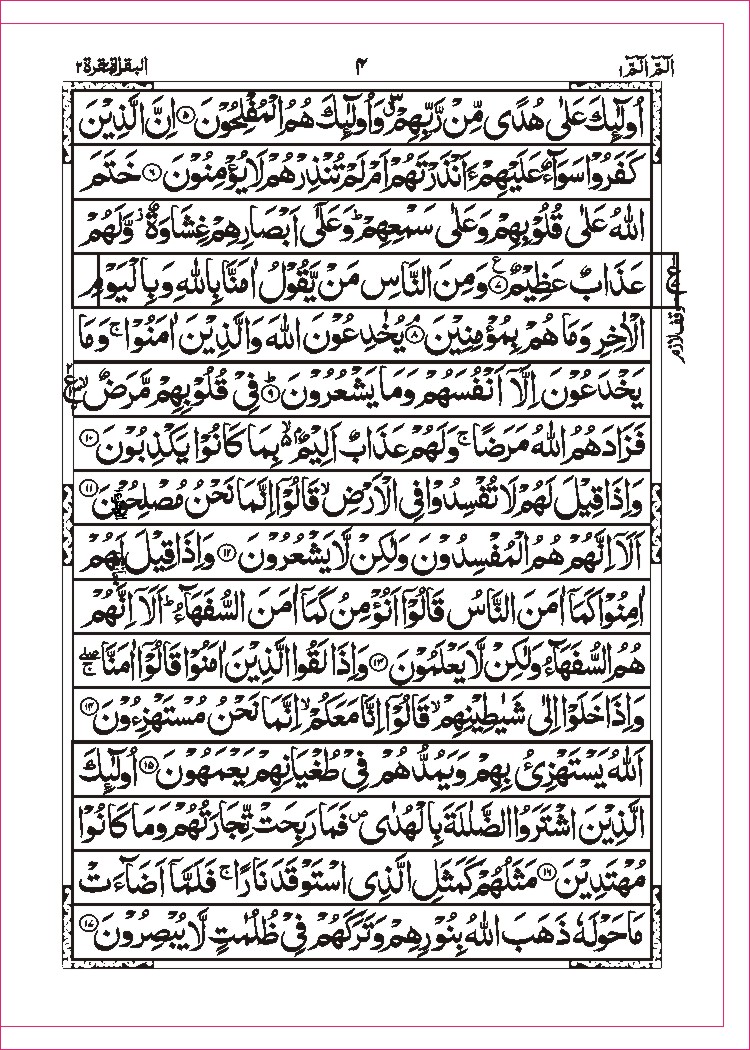 الٓمّٓ الٓمّٓ ۱
۴
البقرة ۲
اُولٰٓئِكَ عَلٰى هُدًى مِّنْ رَّبِّهِمْ ۙ وَاُولٰٓئِكَ هُمُ الْمُفْلِحُوْنَ ۵ اِنَّ الَّذِيْنَ
كَفَرُوْا سَوَآءٌ عَلَيْهِمْ ءَاَنْذَرْتَهُمْ اَمْ لَمْ تُنْذِرْهُمْ لَا يُؤْمِنُوْنَ ۶ خَتَمَ
اللهُ عَلٰى قُلُوْبِهِمْ وَعَلٰى سَمْعِهِمْ ؕ وَعَلٰٓى اَبْصَارِهِمْ غِشَاوَةٌ ز وَّلَهُمْ
عَذَابٌ عَظِيْمٌ ۷ ع وَمِنَ النَّاسِ مَنْ يَّقُوْلُ اٰمَنَّا بِاللهِ وَبِالْيَوْمِ
الْاٰخِرِ وَمَا هُمْ بِمُؤْمِنِيْنَ ۘ ۸ يُخٰدِعُوْنَ اللهَ وَالَّذِيْنَ اٰمَنُوْا ۚ وَمَا
يَخْدَعُوْنَ اِلَّآ اَنْفُسَهُمْ وَمَا يَشْعُرُوْنَ ؕ ۹ فِيْ قُلُوْبِهِمْ مَّرَضٌ ۙ
فَزَادَهُمُ اللهُ مَرَضًا ۚ وَلَهُمْ عَذَابٌ اَلِيْمٌ ۙ بِمَا كَانُوْا يَكْذِبُوْنَ ۱۰
وَاِذَا قِيْلَ لَهُمْ لَا تُفْسِدُوْا فِي الْاَرْضِ ۙ قَالُوْٓا اِنَّمَا نَحْنُ مُصْلِحُوْنَ ۱۱
اَلَآ اِنَّهُمْ هُمُ الْمُفْسِدُوْنَ وَلٰكِنْ لَّا يَشْعُرُوْنَ ۱۲ وَاِذَا قِيْلَ لَهُمْ
اٰمِنُوْا كَمَآ اٰمَنَ النَّاسُ قَالُوْٓا اَنُؤْمِنُ كَمَآ اٰمَنَ السُّفَهَآءُ ؕ اَلَآ اِنَّهُمْ
هُمُ السُّفَهَآءُ وَلٰكِنْ لَّا يَعْلَمُوْنَ ۱۳ وَاِذَا لَقُوا الَّذِيْنَ اٰمَنُوْا قَالُوْٓا اٰمَنَّا ۖۚ
وَاِذَا خَلَوْا اِلٰى شَيٰطِيْنِهِمْ ۙ قَالُوْٓا اِنَّا مَعَكُمْ ۙ اِنَّمَا نَحْنُ مُسْتَهْزِءُوْنَ ۱۴
اَللهُ يَسْتَهْزِئُ بِهِمْ وَيَمُدُّهُمْ فِيْ طُغْيَانِهِمْ يَعْمَهُوْنَ ۱۵ اُولٰٓئِكَ
الَّذِيْنَ اشْتَرَوُا الضَّلٰلَةَ بِالْهُدٰى ص فَمَا رَبِحَتْ تِّجَارَتُهُمْ وَمَا كَانُوْا
مُهْتَدِيْنَ ۱۶ مَثَلُهُمْ كَمَثَلِ الَّذِي اسْتَوْقَدَ نَارًا ۚ فَلَمَّآ اَضَآءَتْ
مَا حَوْلَهٗ ذَهَبَ اللهُ بِنُوْرِهِمْ وَتَرَكَهُمْ فِيْ ظُلُمٰتٍ لَّا يُبْصِرُوْنَ ۱۷
وقف لازم